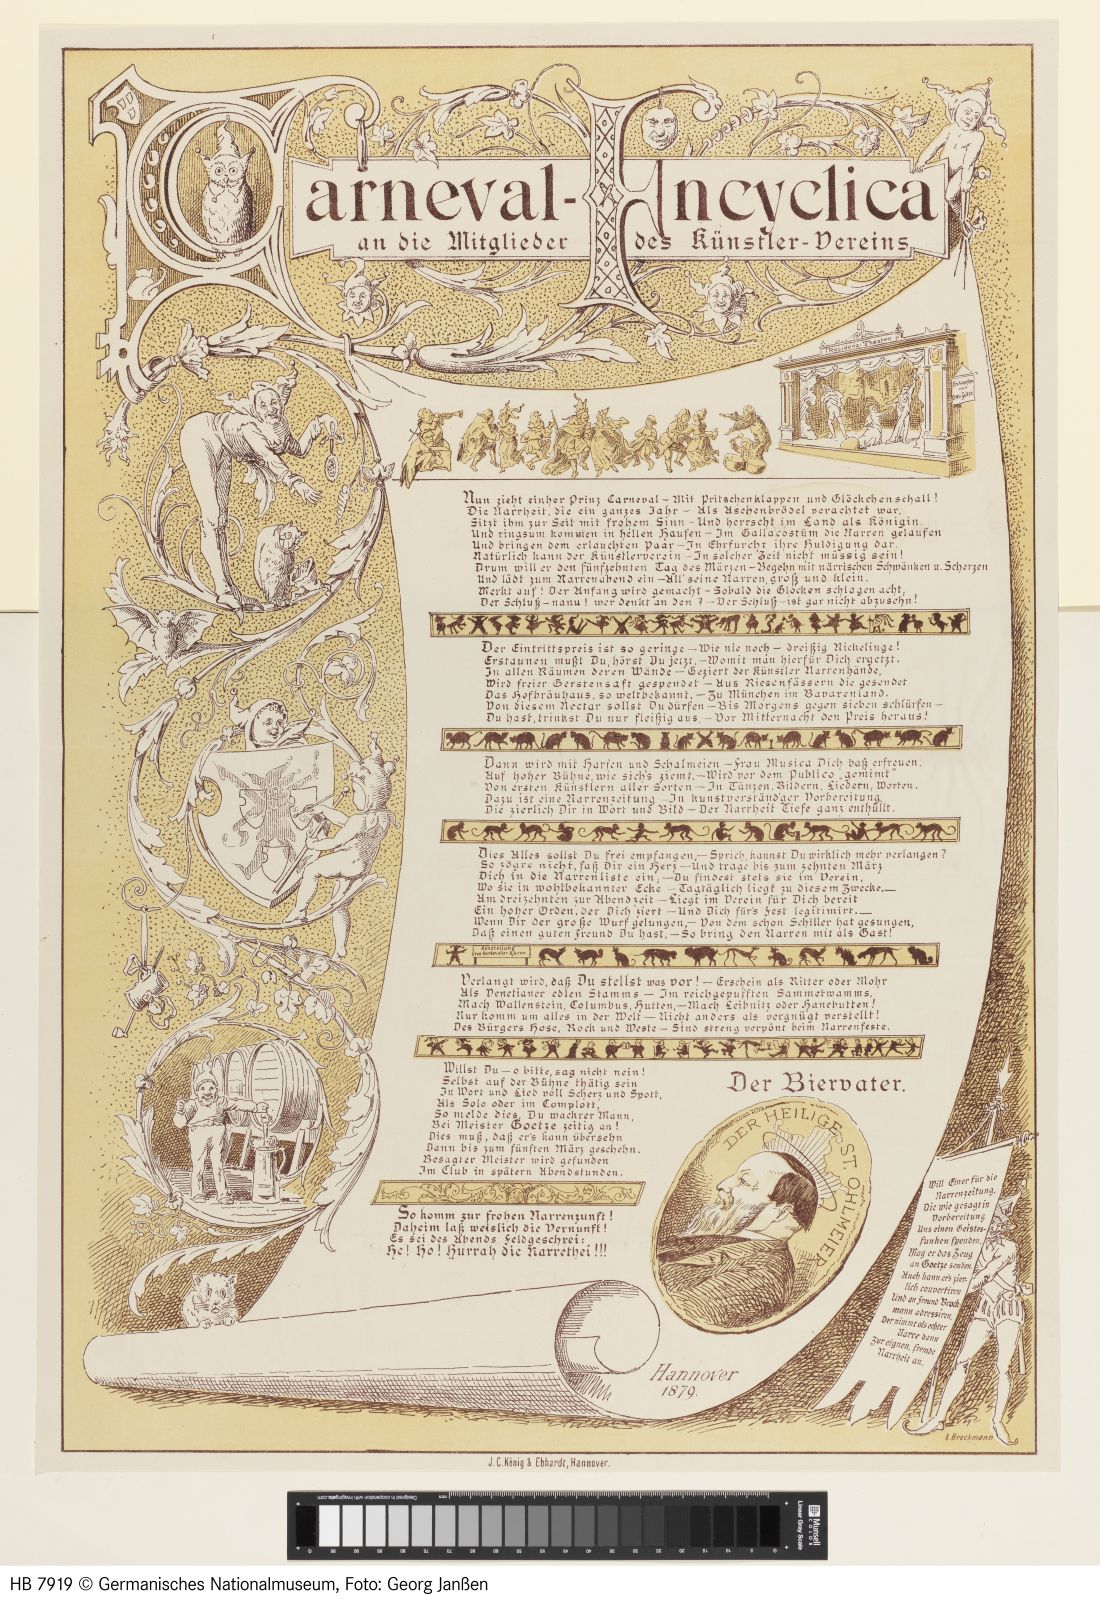 Carneval-Encyclica
an die Mitglieder des Künstler-Vereins
Residenz-Theater
Nun zieht einher Prinz Carneval – Mit Pritschenklappen und Glöckchenschall!
Die Narrheit, die ein ganzes Jahr – Als Aschenbrödel verachtet war,
Sitzt ihm zur Seit mit frohem Sinn – Und herrscht im Land als Königin.
Und ringsum kommen in hellen Haufen – Im Gallacostüm die Narren gelaufen
Und bringen dem erlauchten Paar – In Ehrfurcht ihre Huldigung dar.
Natürlich kann der Künstlerverein – In solcher Zeit nicht müssig sein!
Drum will er den fünfzehnten Tag des Märzen – Begehn mit närrischen Schwänken u. Scherzen
Und lädt zum Narrenabend ein – All' seine Narren, groß und klein.
Merkt auf! Der Anfang wird gemacht – Sobald die Glocken schlagen acht,
Der Schluß – nanu! wer denkt an den? – Der Schluß – ist gar nicht abzusehn!
Der Eintrittspreis ist so geringe – Wie nie noch – dreißig Nickelinge!
Erstaunen mußt Du, hörst Du jetzt, – Womit man hierfür Dich ergetzt.
In allen Räumen deren Wände – Geziert der Künstler Narrenhände,
Wird freier Gerstensaft gespendet – Aus Riesenfässern die gesendet
Das Hofbräuhaus, so weltbekannt, – Zu München im Bavarenland.
Von diesem Nectar sollst Du dürfen – Bis Morgens gegen sieben schlürfen –
Du hast, trinkst Du nur fleißig aus, – Vor Mitternacht den Preis heraus!
Dann wird mit Harfen und Schalmeien – Frau Musica Dich baß erfreuen.
Auf hoher Bühne, wie sich's ziemt, – Wird vor dem Publico „gemimt"
Von ersten Künstlern aller Sorten – In Tänzen, Bildern, Liedern, Worten.
Dazu ist eine Narrenzeitung – In kunstverständ'ger Vorbereitung
Die zierlich Dir in Wort und Bild – Der Narrheit Tiefe ganz enthüllt.
Dies Alles sollst Du frei empfangen, – Sprich, kannst Du wirklich mehr verlangen?
So zögre nicht, faß Dir ein Herz – Und trage bis zum zehnten März
Dich in die Narrenliste ein, – Du findest stets sie im Verein,
Wo sie in wohlbekannter Ecke – Tagtäglich liegt zu diesem Zwecke. –
Am dreizehnten zur Abendzeit – Liegt im Verein für Dich bereit
Ein hoher Orden, der Dich ziert – Und Dich für's Fest legitimirt. –
Wenn Dir der große Wurf gelungen, – Von dem schon Schiller hat gesungen,
Daß einen guten Freund Du hast, – So bring den Narren mit als Gast!
Ausstellung
Verlangt wird, daß Du stellst was vor! – Erschein als Ritter oder Mohr
Als Venetianer edlen Stamms – Im reichgepufften Sammetwamms,
Mach Wallenstein, Columbus, Hutten, – Mach Leibnitz oder Hanebutten!
Nur komm um alles in der Welt – Nicht anders als vergnügt verstellt!
Des Bürgers Hose, Rock und Weste – Sind streng verpönt beim Narrenfeste.
Willst Du – o bitte, sag nicht nein!
Selbst auf der Bühne thätig sein
In Wort und Lied voll Scherz und Spott,
Als Solo oder im Complott,
So melde dies, Du wackrer Mann,
Bei Meister Goetze zeitig an!
Dies muß, daß er's kann übersehn
Dann bis zum fünften März geschehn.
Besagter Meister wird gefunden
Im Club in spätern Abendstunden.
So komm zur frohen Narrenzunft!
Daheim laß weislich die Vernunft!
Es sei des Abends Feldgeschrei:
He! Ho! Hurrah die Narrethei!!!
Der Biervater.
DER HEILIGE ST OHLMEIER
Will Einer für die
Narrenzeitung,
Die wie gesagt in
Vorbereitung
Uns einen Geistes-
funken spenden,
Mag er das Zeug
an Goetze senden.
Auch kann er's zier-
lich couvertiren
Und an Freund Brock-
mann adressiren,
Der nimmt als echter
Narre dann
Zur eignen, fremde
Narrheit an.
Hannover
1879.
A. Brockmann
J. C. König & Ebhardt, Hannover.
Munsell
COLOR
Linear Gray Scale
HB 7919 © Germanisches Nationalmuseum, Foto: Georg Janßen